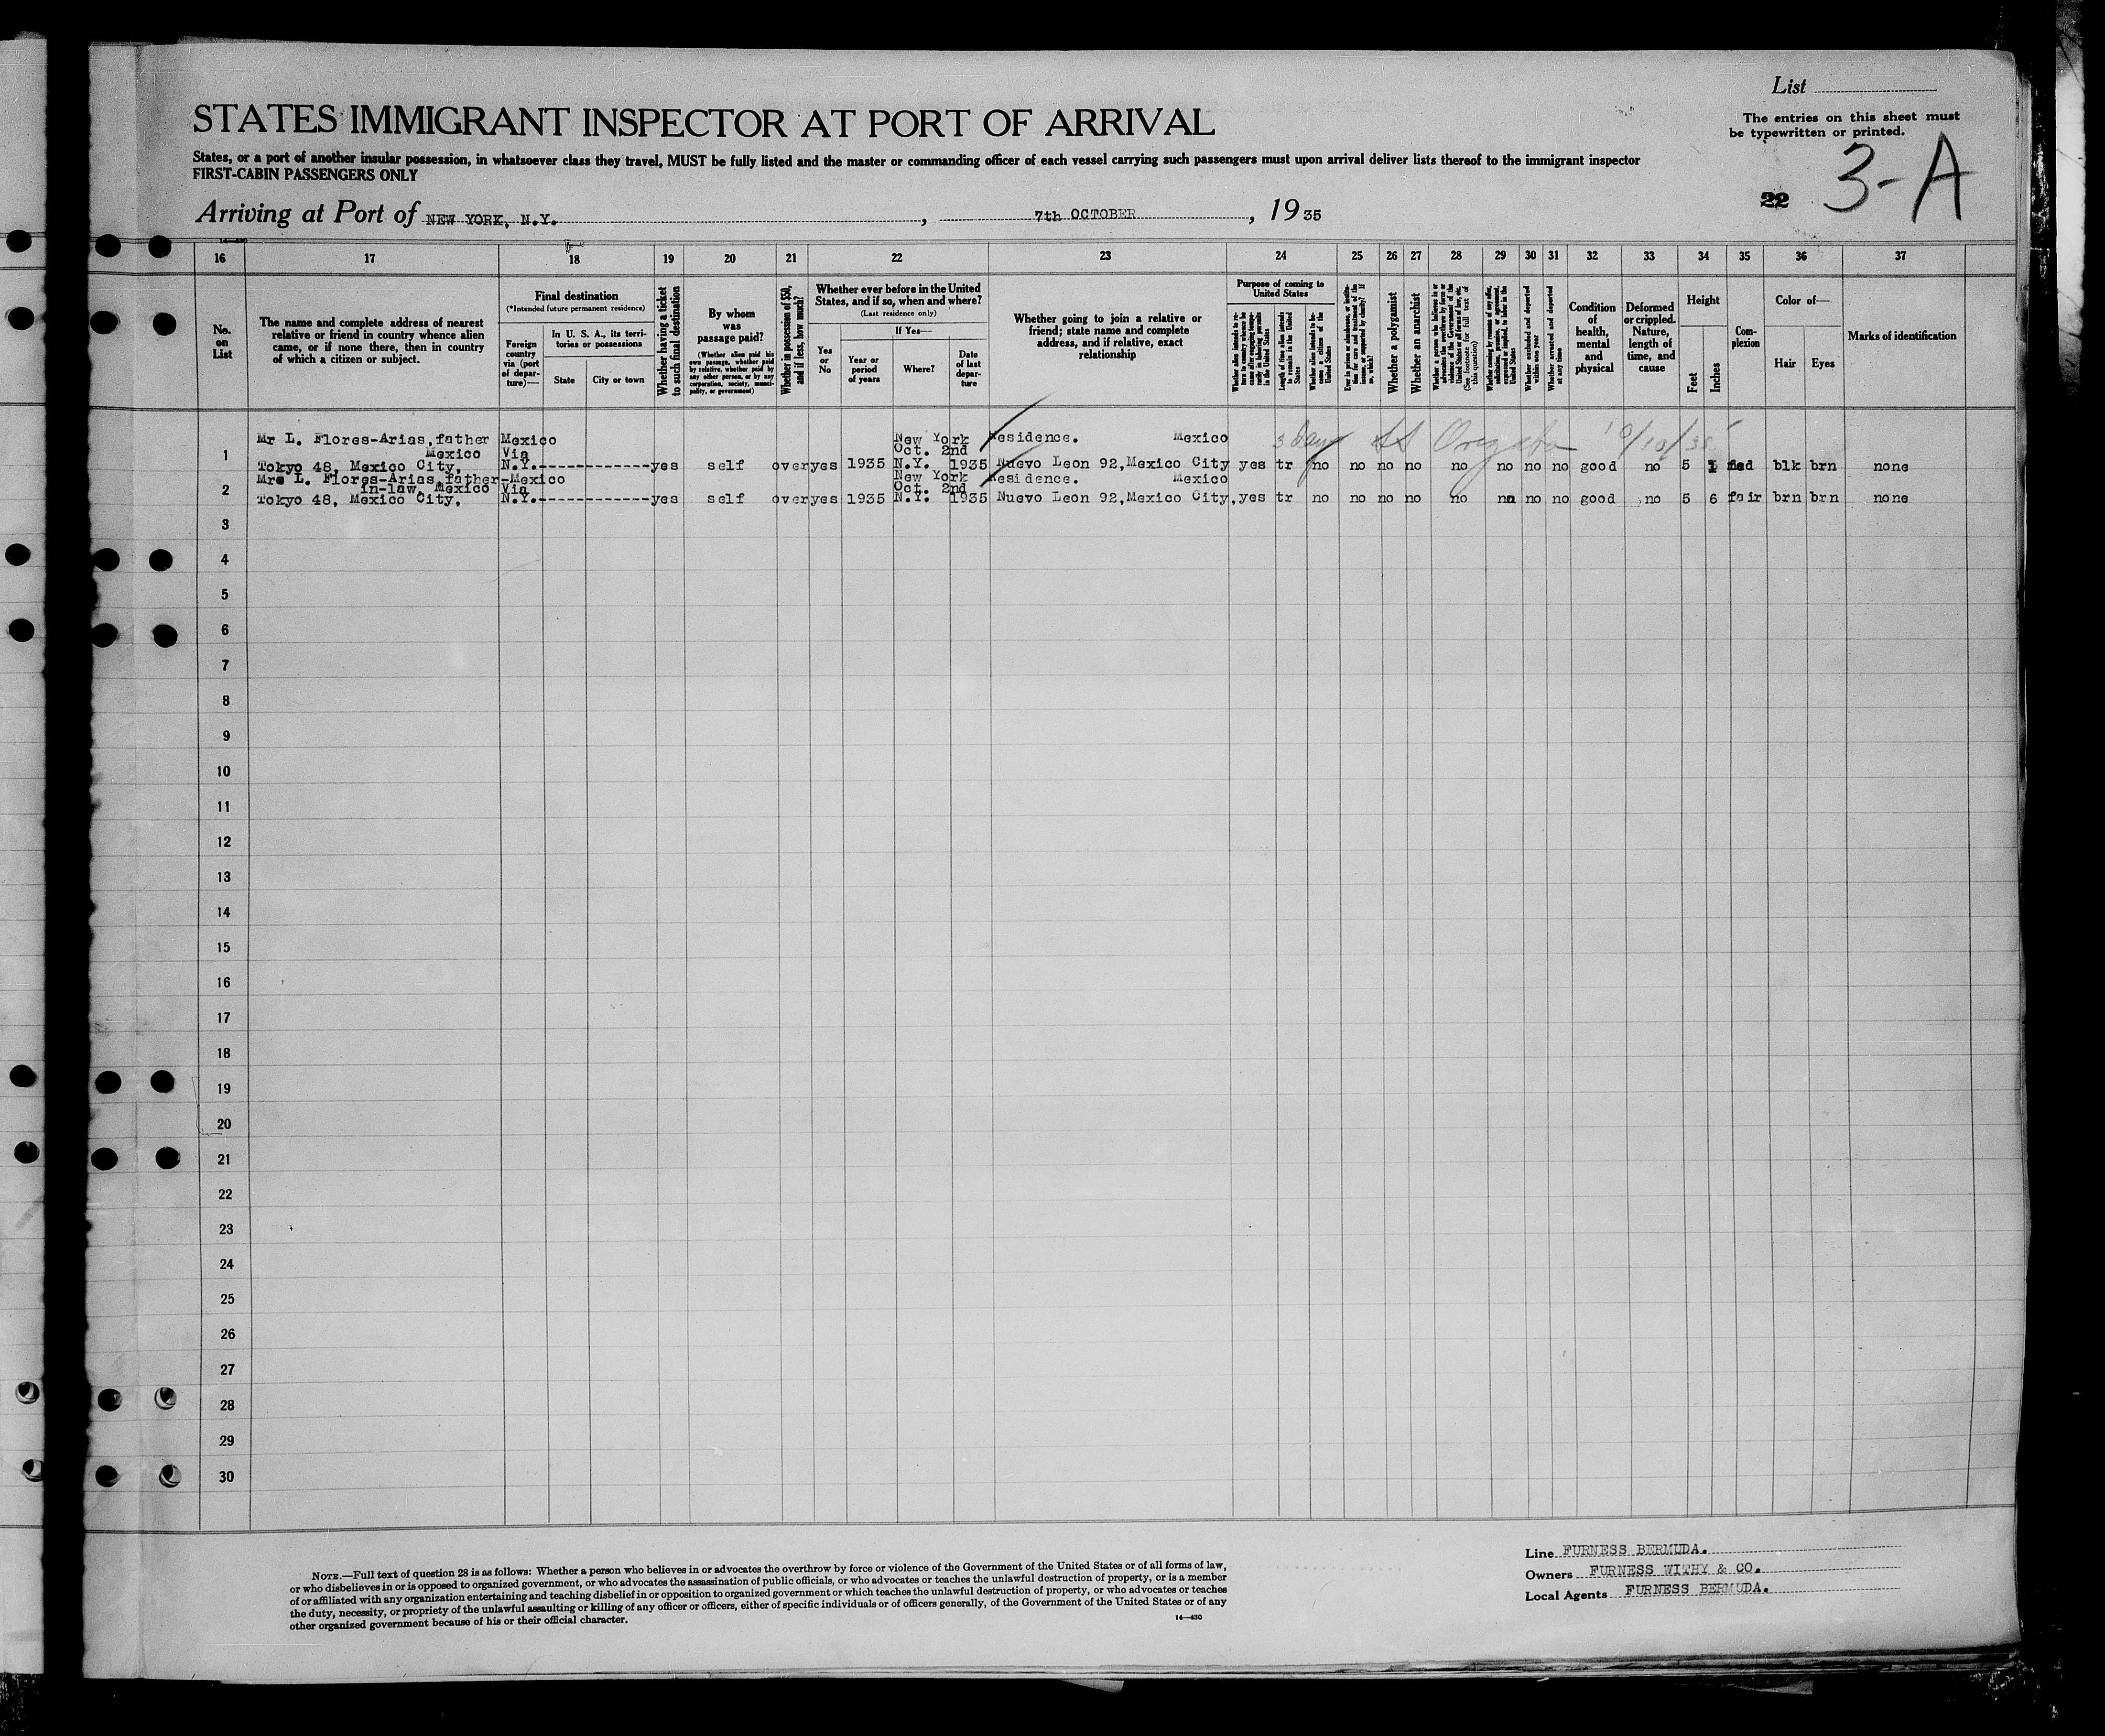 List
STATES IMMIGRANT INSPECTOR AT PORT OF ARRIVAL
The entries on this sheet must
be typewritten or printed.
States, or a port of another insular possession, in whatsoever class they travel, MUST be fully listed and the master or commanding officer of each vessel carrying such passengers must upon arrival deliver lists thereof to the immigrant inspector
FIRST-CABIN PASSENGERS ONLY
22 3-A
Arriving at Port of NEW YORK, N.Y. , 7th OCTOBER , 19 35
16 17 18 19 20 21 22 23 24 25 26 27 28 29 30 31 32 33 34 35 36 37
No.
on
List
The name and complete address of nearest
relative or friend in country whence alien
came, or if none there, then in country
of which a citizen or subject.
Final destination
(*Intended future permanent residence)
Foreign
country
via (port
of depar-
ture)—
In U. S. A., its terri-
tories or possessions
State City or town
Whether having a ticket
to such final destination
By whom
was
passage paid?
(Whether alien paid his
own passage, whether paid
by relative, whether paid by
any other person, or by any
corporation, society, munici-
pality, or government)
Whether in possession of $50,
and if less, how much?
Whether ever before in the United
States, and if so, when and where?
(Last residence only)
Yes
or
No
If Yes—
Year or
period
of years
Where?
Date
of last
depar-
ture
Whether going to join a relative or
friend; state name and complete
address, and if relative, exact
relationship
Purpose of coming to
United States
Length of time alien intends
to remain in the United
States
Whether a polygamist
Whether an anarchist
(See footnote for full text of
this question)
Whether excluded and deported
within one year
Whether arrested and deported
at any time
Condition
of
health,
mental
and
physical
Deformed
or crippled.
Nature,
length of
time, and
cause
Height
Feet
Inches
Com-
plexion
Color of—
Hair Eyes
Marks of identification
Mr L. Flores-Arias, father Mexico New York Residence. Mexico 3 days SS 9/10/35
Mexico Via Oct. 2nd
1 Tokyo 48, Mexico City, N.Y.------------yes self over yes 1935 N.Y. 1935 Nuevo Leon 92, Mexico City yes tr no no no no no no no no good no 5 blk brn none
Mrs L. Flores-Arias, father-Mexico New York Residence. Mexico
in-law, Mexico Via Oct. 2nd
2 Tokyo 48, Mexico City, N.Y.------------yes self over yes 1935 N.Y. 1935 Nuevo Leon 92, Mexico City, yes tr no no no no no no no no good no 5 6 fair brn brn none
3
4
5
6
7
8
9
10
11
12
13
14
15
16
17
18
19
20
21
22
23
24
25
26
27
28
29
30
NOTE.—Full text of question 28 is as follows: Whether a person who believes in or advocates the overthrow by force or violence of the Government of the United States or of all forms of law,
or who disbelieves in or is opposed to organized government, or who advocates the assassination of public officials, or who advocates or teaches the unlawful destruction of property, or is a member
of or affiliated with any organization entertaining and teaching disbelief in or opposition to organized government or which teaches the unlawful destruction of property, or who advocates or teaches
the duty, necessity, or propriety of the unlawful assaulting or killing of any officer or officers, either of specific individuals or of officers generally, of the Government of the United States or of any
other organized government because of his or their official character.
14—430
Line FURNESS BERMUDA.
Owners FURNESS WITHY & CO.
Local Agents FURNESS BERMUDA.